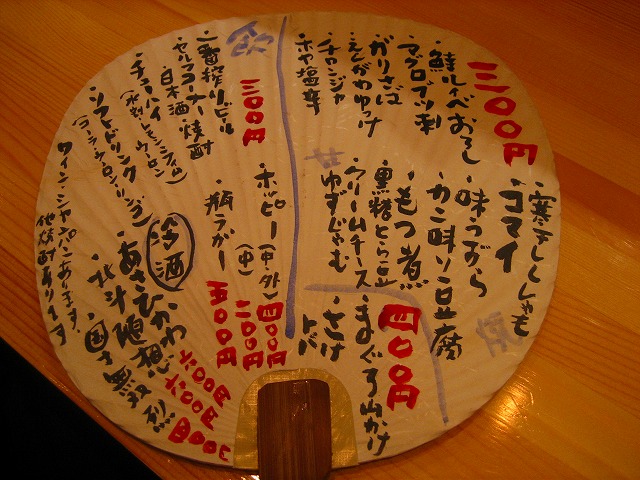 三〇〇円
・寒干ししゃも
・コマイ
・鮭ルイベおろし
・味つぶうら
・マグロブツ刺
・カニ味噌豆腐
・がりさば
・もつ煮
・えんがわゆっけ
・黒糖とら豆
・チャンジャ
・クリームチーズ
ゆずじゃむ
・ホヤ塩辛
四〇〇円
・まぐろ山かけ
・さけトバ
飲
三〇〇円
・一番搾りビール
・セルフコーナー 焼酎
日本酒
・チューハイ
(水割・レモン・ライム・ウーロン)
・ソフトドリンク
(コーラ・ウーロン・リンゴ)
ワイン・シャンパンあります。
他焼酎あります
・ホッピー(中・外)四〇〇円
(中)二〇〇円
・瓶ラガー 五〇〇円
冷酒
・あさひかわ 六〇〇円
・北斗随想 六〇〇円
・国士無双 烈 八〇〇円